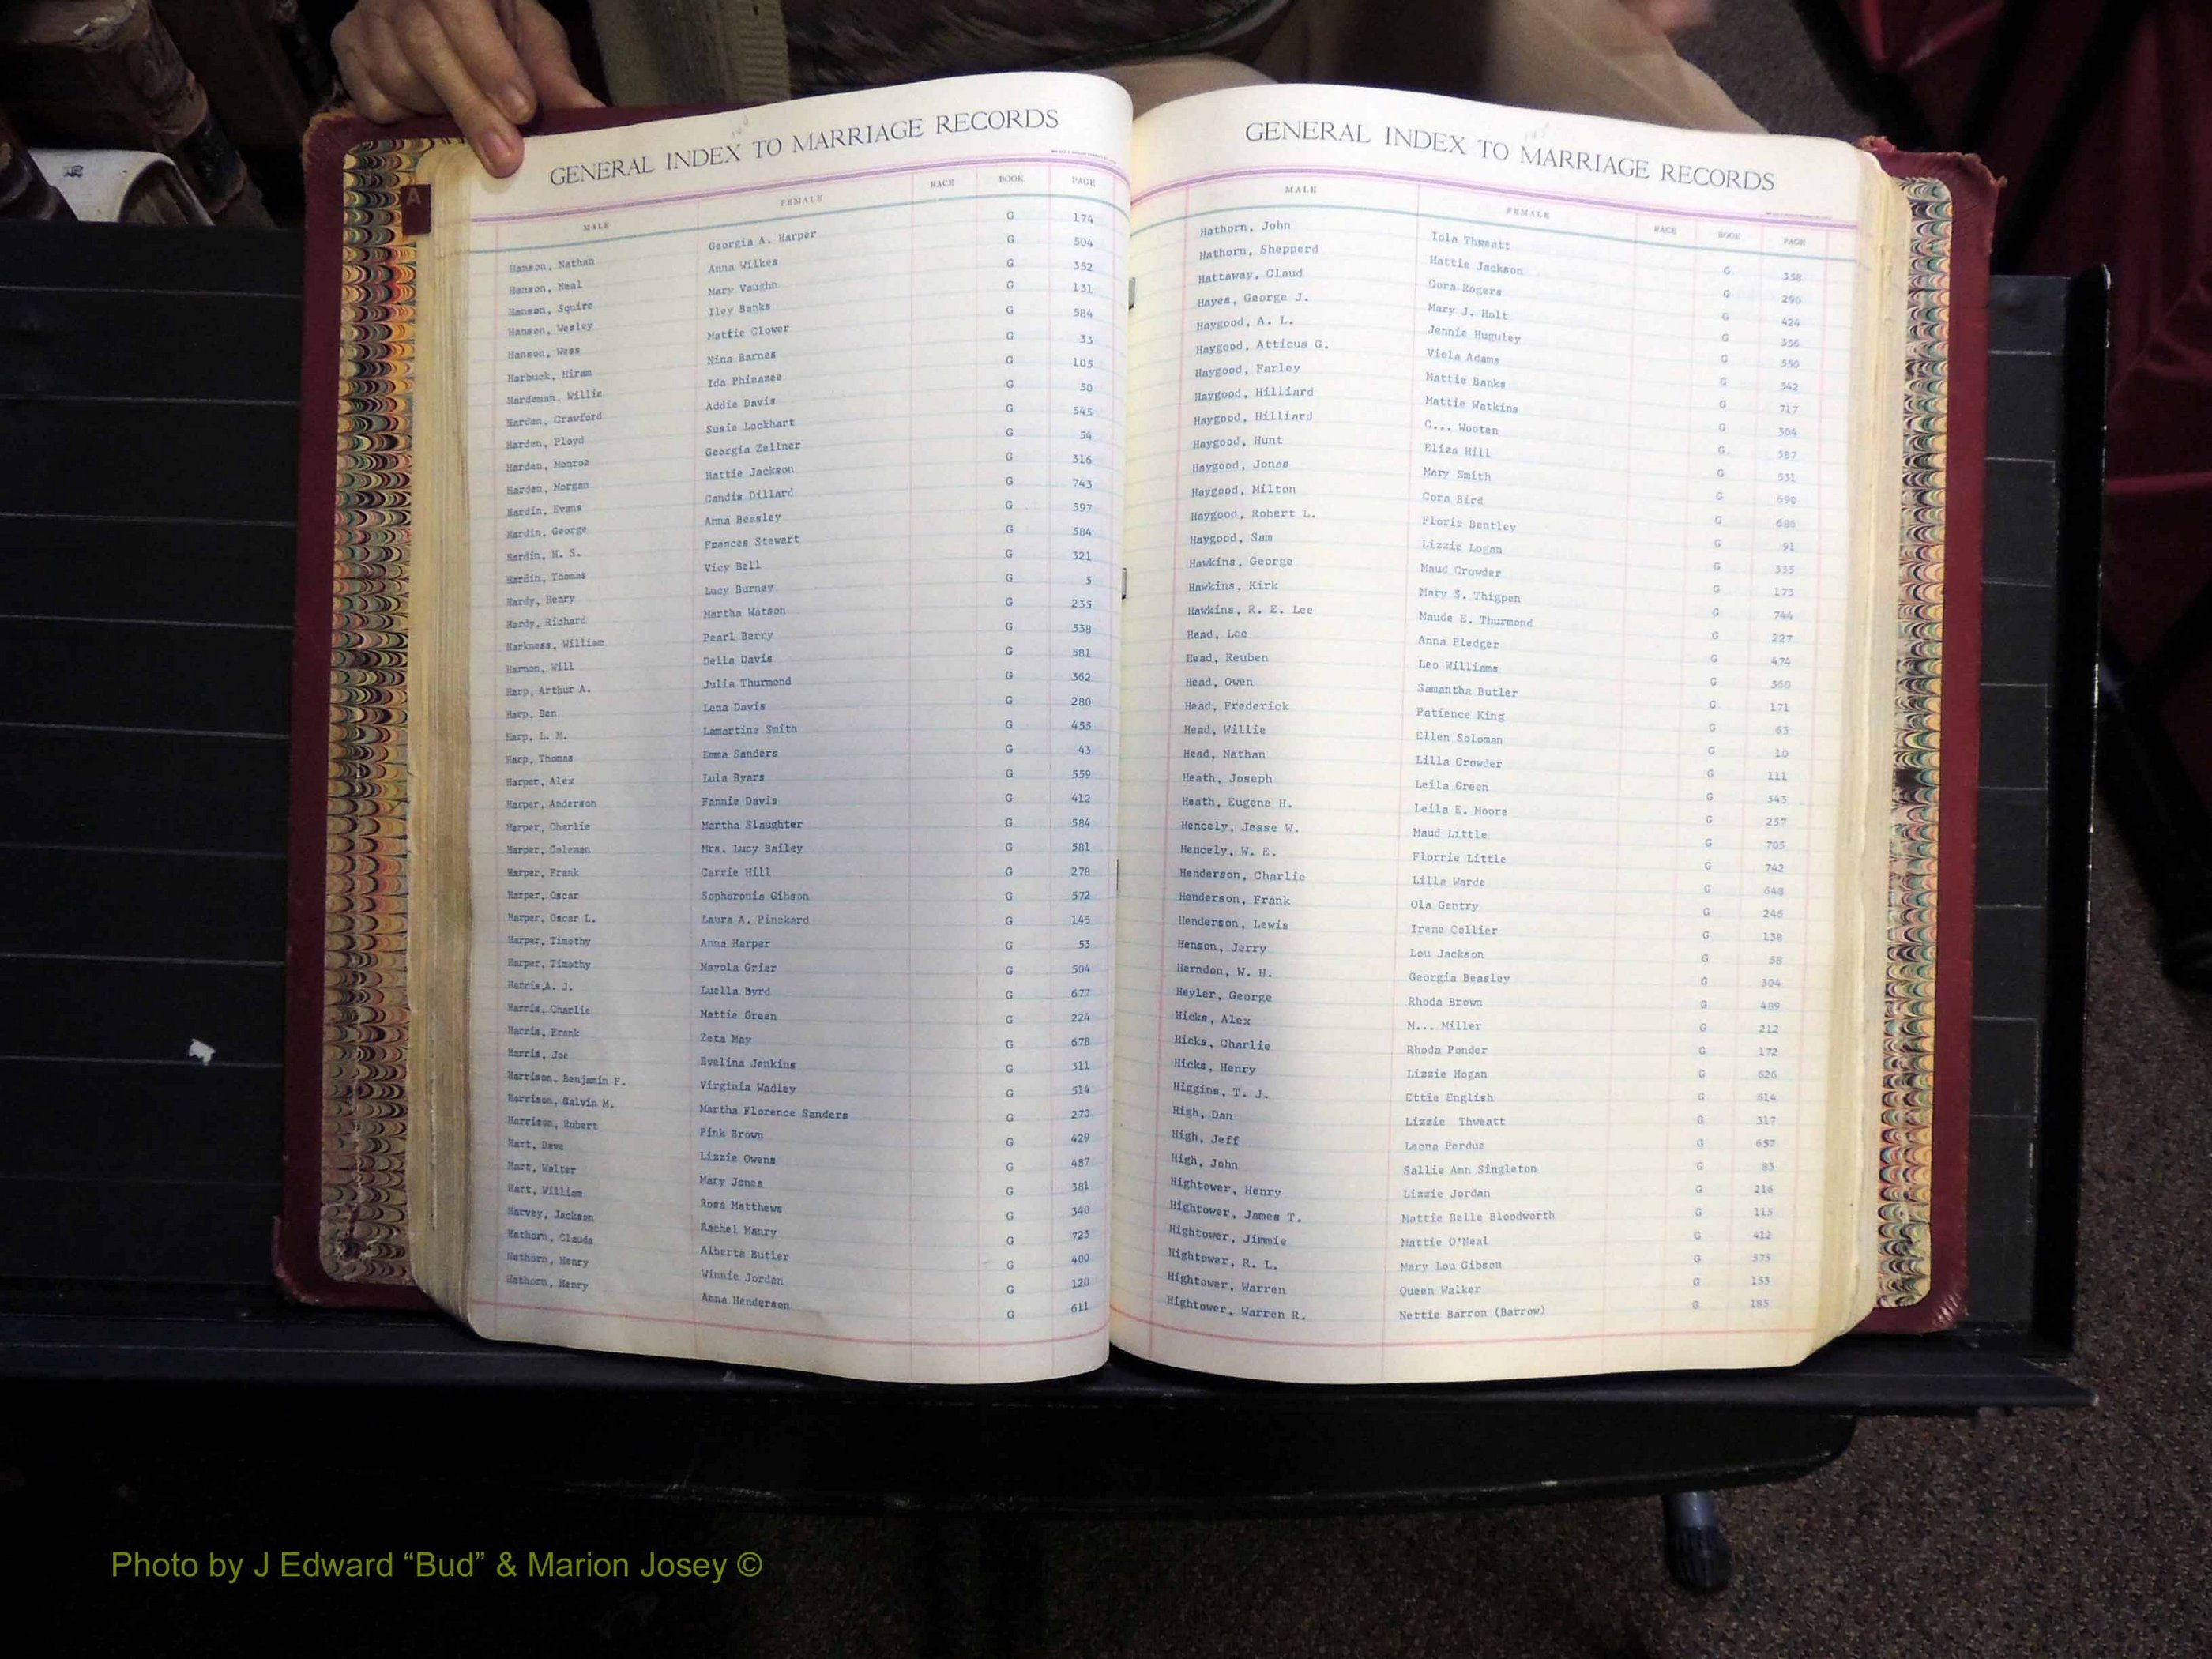 GENERAL INDEX TO MARRIAGE RECORDS
MALE FEMALE RACE BOOK PAGE
Hanson, Nathan Georgia A. Harper G 174
Hanson, Neal Anna Wilkes G 504
Hanson, Squire Mary Vaughn G 352
Hanson, Wesley Iley Banks G 131
Hanson, Wess Mattie Clower G 584
Harbuck, Hiram Nina Barnes G 33
Hardeman, Willie Ida Phinazee G 105
Harden, Crawford Addie Davis G 50
Harden, Floyd Susie Lockhart G 545
Harden, Monroe Georgia Zellner G 54
Harden, Morgan Hattie Jackson G 316
Hardin, Evans Candis Dillard G 743
Hardin, George Anna Beasley G 597
Hardin, H. S. Frances Stewart G 584
Hardin, Thomas Vicy Bell G 321
Hardy, Henry Lucy Burney G 5
Hardy, Richard Martha Watson G 235
Harkness, William Pearl Berry G 538
Harmon, Will Della Davis G 581
Harp, Arthur A. Julia Thurmond G 362
Harp, Ben Lena Davis G 280
Harp, L. M. Lamartine Smith G 455
Harp, Thomas Emma Sanders G 43
Harper, Alex Lula Byars G 559
Harper, Anderson Fannie Davis G 412
Harper, Charlie Martha Slaughter G 584
Harper, Coleman Mrs. Lucy Bailey G 581
Harper, Frank Carrie Hill G 278
Harper, Oscar Sophoronia Gibson G 572
Harper, Oscar L. Laura A. Pinckard G 145
Harper, Timothy Anna Harper G 53
Harper, Timothy Mayola Grier G 504
Harris,A. J. Luella Byrd G 677
Harris, Charlie Mattie Green G 224
Harris, Frank Zeta May G 678
Harris, Joe Evelina Jenkins G 311
Harrison, Benjamin F. Virginia Wadley G 514
Harrison, Calvin M. Martha Florence Sanders G 270
Harrison, Robert Pink Brown G 429
Hart, Dave Lizzie Owens G 487
Hart, Walter Mary Jones G 381
Hart, William Rosa Matthews G 340
Harvey, Jackson Rachel Maury G 723
Hathorn, Claude Alberta Butler G 400
Hathorn, Henry Winnie Jordan G 120
Hathorn, Henry Anna Henderson G 611
GENERAL INDEX TO MARRIAGE RECORDS
MALE FEMALE RACE BOOK PAGE
Hathorn, John Iola Thweatt G 358
Hathorn, Shepperd Hattie Jackson G 290
Hattaway, Claud Cora Rogers G 424
Hayes, George J. Mary J. Holt G 356
Haygood, A. L. Jennie Huguley G 550
Haygood, Atticus G. Viola Adams G 542
Haygood, Farley Mattie Banks G 717
Haygood, Hilliard Mattie Watkins G 504
Haygood, Hilliard C... Wooten G. 587
Haygood, Hunt Eliza Hill G 531
Haygood, Jonas Mary Smith G 690
Haygood, Milton Cora Bird G 686
Haygood, Robert L. Florie Bentley G 91
Haygood, Sam Lizzie Logan G 335
Hawkins, George Maud Crowder G 173
Hawkins, Kirk Mary S. Thigpen G 744
Hawkins, R. E. Lee Maude E. Thurmond G 227
Head, Lee Anna Pledger G 474
Head, Reuben Leo Williams G 360
Head, Owen Samantha Butler G 171
Head, Frederick Patience King G 63
Head, Willie Ellen Soloman G 10
Head, Nathan Lilla Crowder G 111
Heath, Joseph Leila Green G 343
Heath, Eugene H. Leila E. Moore G 257
Hencely, Jesse W. Maud Little G 705
Hencely, W. E. Florrie Little G 742
Henderson, Charlie Lilla Warde G 648
Henderson, Frank Ola Gentry G 246
Henderson, Lewis Irene Collier G 138
Henson, Jerry Lou Jackson G 58
Herndon, W. H. Georgia Beasley G 304
Heyler, George Rhoda Brown G 489
Hicks, Alex M... Miller G 212
Hicks, Charlie Rhoda Ponder G 172
Hicks, Henry Lizzie Hogan G 626
Higgins, T. J. Ettie English G 614
High, Dan Lizzie Thweatt G 317
High, Jeff Leona Perdue G 657
High, John Sallie Ann Singleton G 83
Hightower, Henry Lizzie Jordan G 216
Hightower, James T. Mattie Belle Bloodworth G 115
Hightower, Jimmie Mattie O'Neal G 412
Hightower, R. L. Mary Lou Gibson G 575
Hightower, Warren Queen Walker G 153
Hightower, Warren R. Nettie Barron (Barrow) G 185
A
Photo by J Edward “Bud” & Marion Josey ©